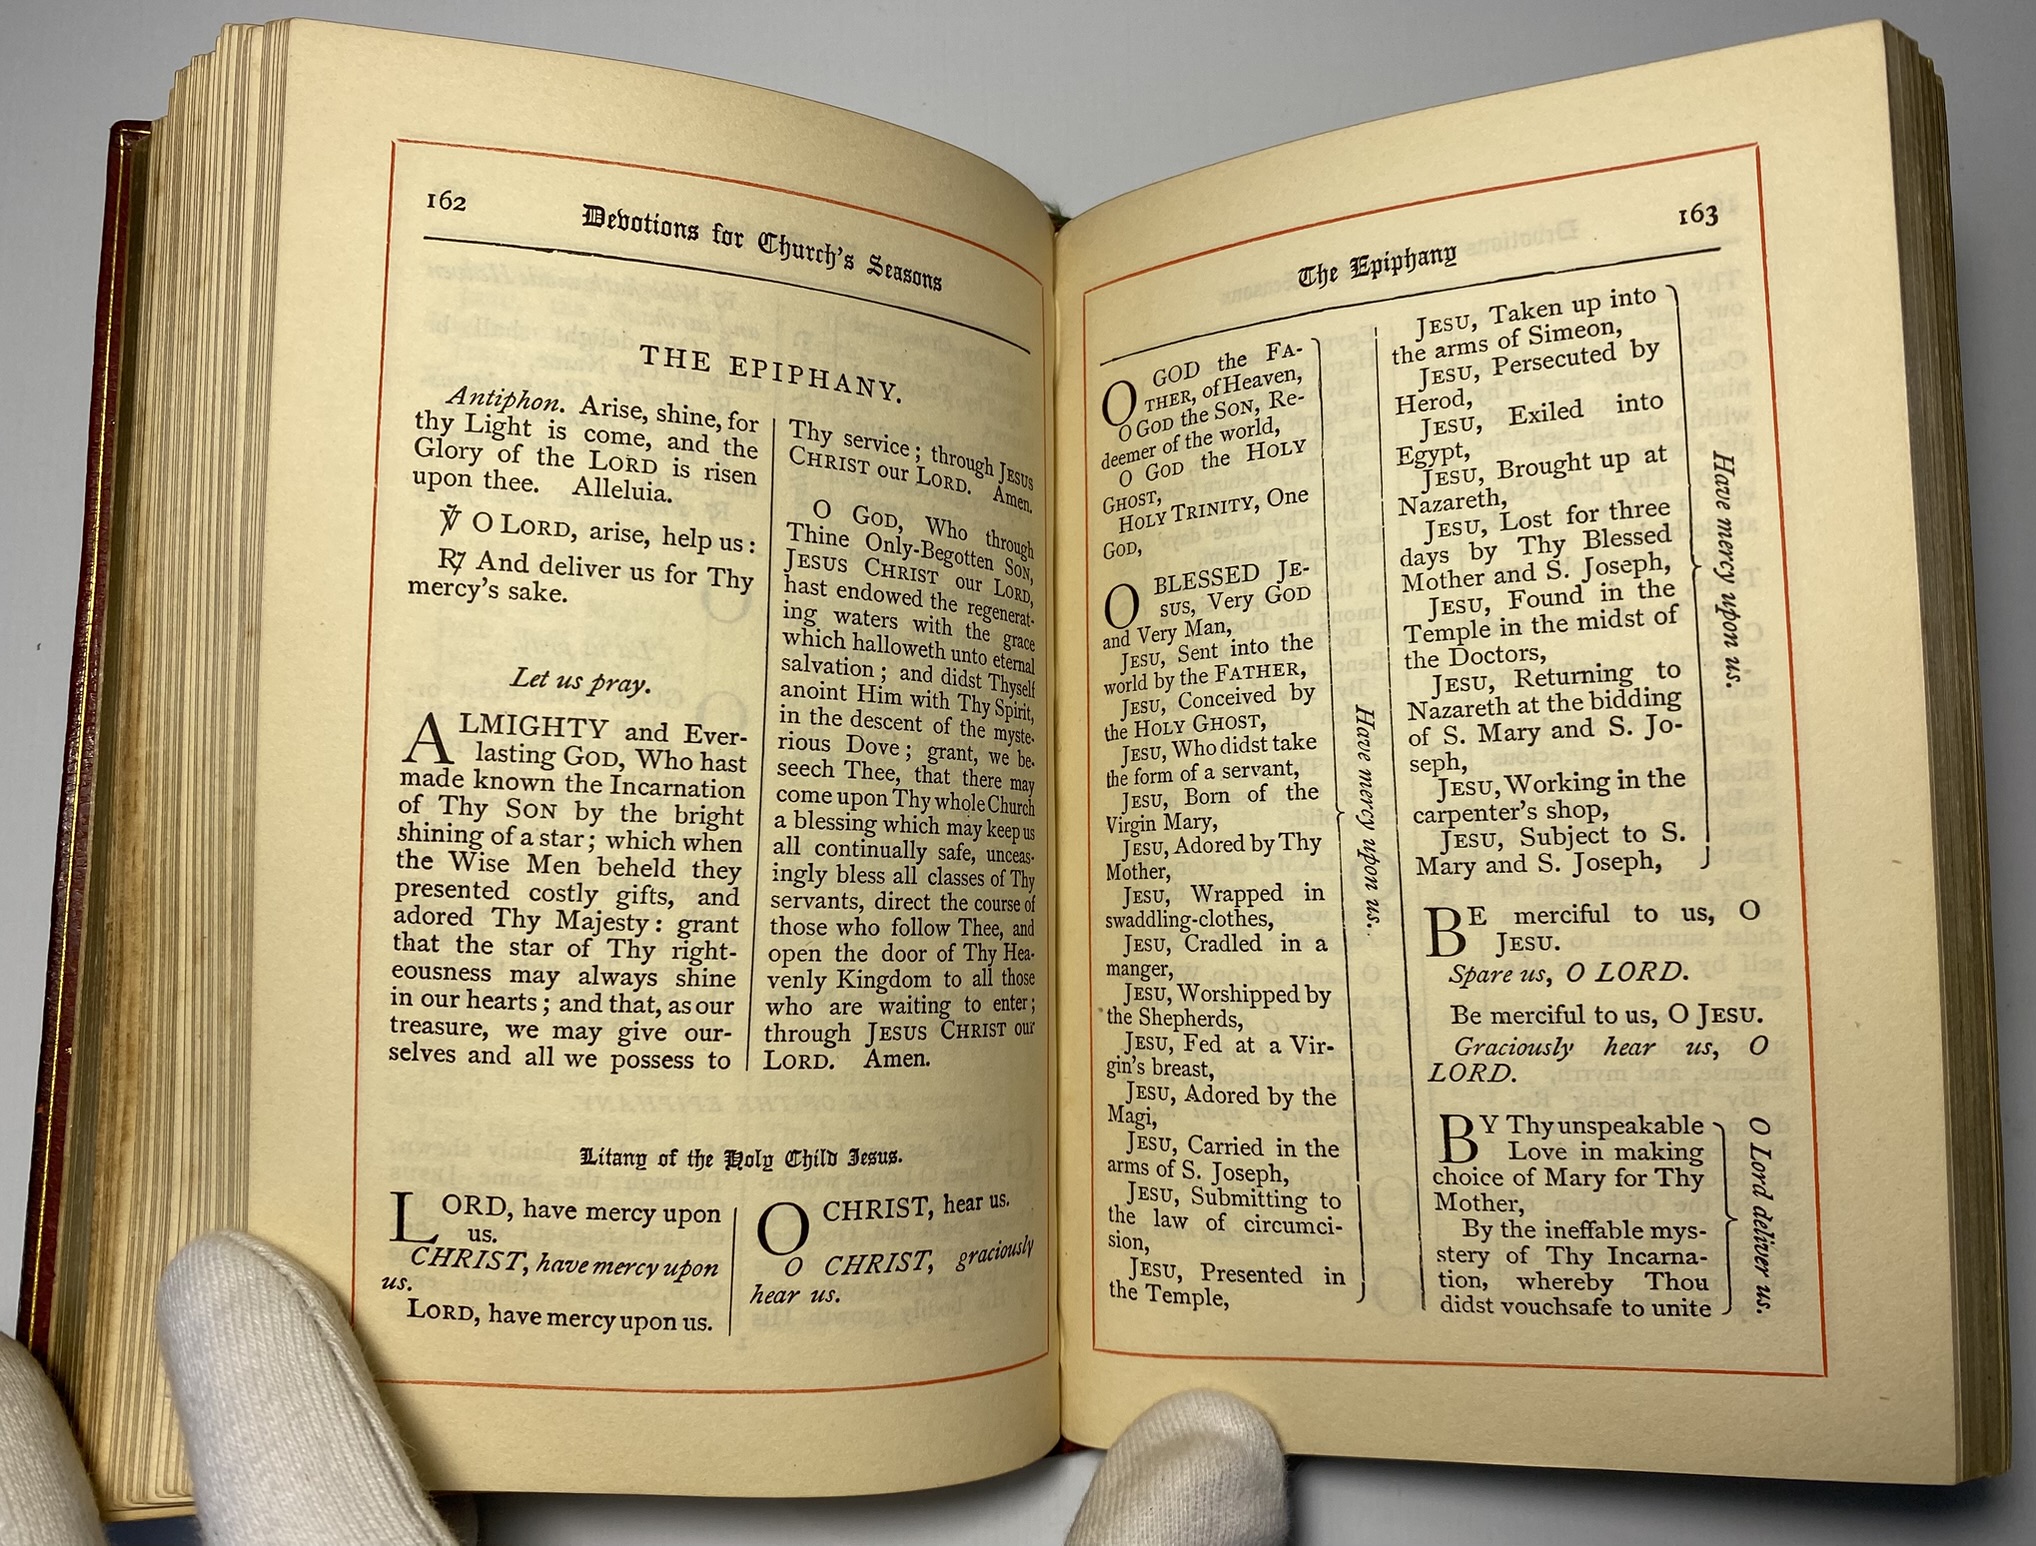 162
Devotions for Church's Seasons
THE EPIPHANY.
Antiphon. Arise, shine, for
thy Light is come, and the
Glory of the LORD is risen
upon thee. Alleluia.
℣ O LORD, arise, help us:
℟ And deliver us for Thy
mercy's sake.
Let us pray.
ALMIGHTY and Ever-
lasting GOD, Who hast
made known the Incarnation
of Thy SON by the bright
shining of a star; which when
the Wise Men beheld they
presented costly gifts, and
adored Thy Majesty: grant
that the star of Thy right-
eousness may always shine
in our hearts; and that, as our
treasure, we may give our-
selves and all we possess to
Thy service; through JESUS
CHRIST our LORD. Amen.
O GOD, Who through
Thine Only-Begotten SON,
JESUS CHRIST our LORD,
hast endowed the regenerat-
ing waters with the grace
which halloweth unto eternal
salvation; and didst Thyself
anoint Him with Thy Spirit,
in the descent of the myste-
rious Dove; grant, we be-
seech Thee, that there may
come upon Thy whole Church
a blessing which may keep us
all continually safe, unceas-
ingly bless all classes of Thy
servants, direct the course of
those who follow Thee, and
open the door of Thy Hea-
venly Kingdom to all those
who are waiting to enter;
through JESUS CHRIST our
LORD. Amen.
Litany of the Holy Child Jesus.
LORD, have mercy upon
us.
CHRIST, have mercy upon
us.
LORD, have mercy upon us.
O CHRIST, hear us.
O CHRIST, graciously
hear us.
163
The Epiphany
O GOD the FA-
THER, of Heaven,
O GOD the SON, Re-
deemer of the world,
O GOD the HOLY
GHOST,
HOLY TRINITY, One
GOD,
O BLESSED JE-
SUS, Very GOD
and Very Man,
JESU, Sent into the
world by the FATHER,
JESU, Conceived by
the HOLY GHOST,
JESU, Who didst take
the form of a servant,
JESU, Born of the
Virgin Mary,
JESU, Adored by Thy
Mother,
JESU, Wrapped in
swaddling-clothes,
JESU, Cradled in a
manger,
JESU, Worshipped by
the Shepherds,
JESU, Fed at a Vir-
gin's breast,
JESU, Adored by the
Magi,
JESU, Carried in the
arms of S. Joseph,
JESU, Submitting to
the law of circumci-
sion,
JESU, Presented in
the Temple,
Have mercy upon us.
JESU, Taken up into
the arms of Simeon,
JESU, Persecuted by
Herod,
JESU, Exiled into
Egypt,
JESU, Brought up at
Nazareth,
JESU, Lost for three
days by Thy Blessed
Mother and S. Joseph,
JESU, Found in the
Temple in the midst of
the Doctors,
JESU, Returning to
Nazareth at the bidding
of S. Mary and S. Jo-
seph,
JESU, Working in the
carpenter's shop,
JESU, Subject to S.
Mary and S. Joseph,
Have mercy upon us.
BE merciful to us, O
JESU.
Spare us, O LORD.
Be merciful to us, O JESU.
Graciously hear us, O
LORD.
BY Thy unspeakable
Love in making
choice of Mary for Thy
Mother,
By the ineffable mys-
stery of Thy Incarna-
tion, whereby Thou
didst vouchsafe to unite
O Lord deliver us.